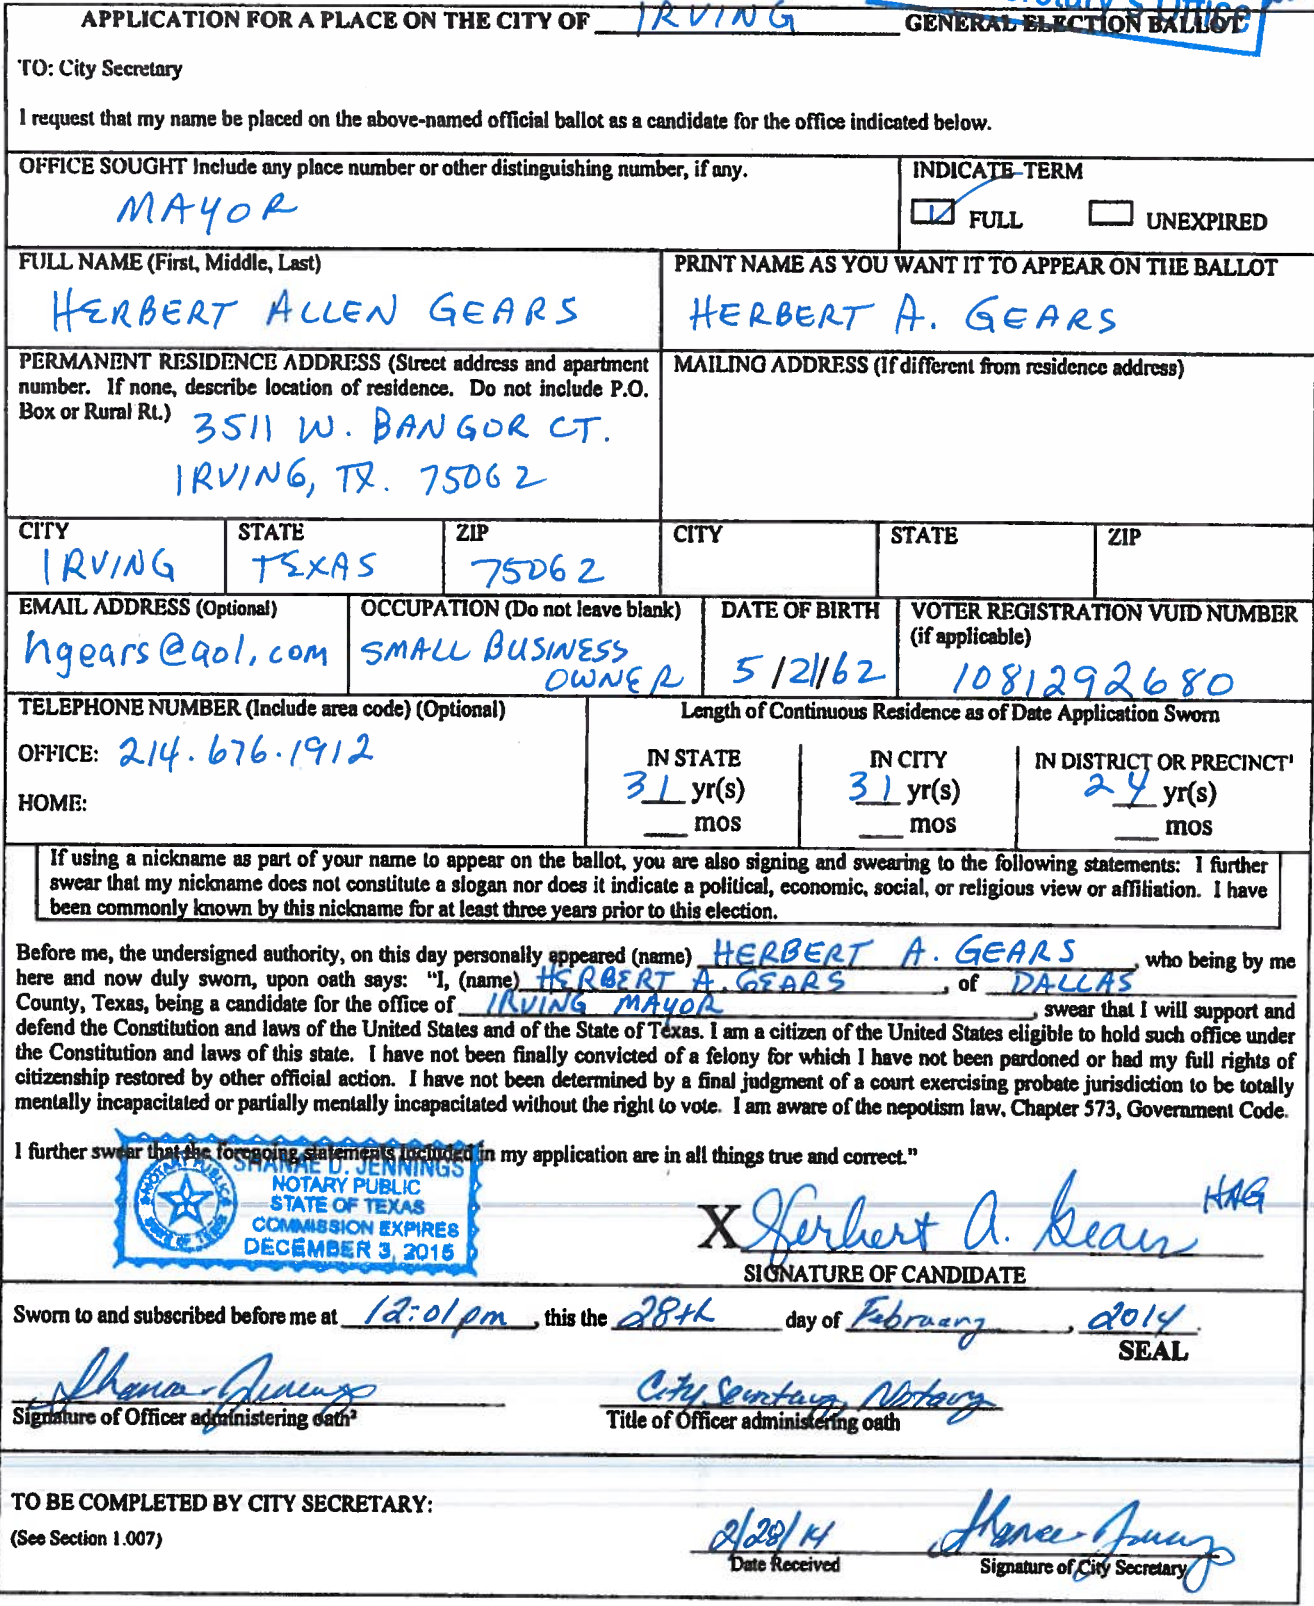 APPLICATION FOR A PLACE ON THE CITY OF IRVING GENERAL ELECTION BALLOT
Office
TO: City Secretary
I request that my name be placed on the above-named official ballot as a candidate for the office indicated below.
OFFICE SOUGHT Include any place number or other distinguishing number, if any.
MAYOR
INDICATE TERM
FULL UNEXPIRED
FULL NAME (First, Middle, Last)
HERBERT ALLEN GEARS
PRINT NAME AS YOU WANT IT TO APPEAR ON THE BALLOT
HERBERT A. GEARS
PERMANENT RESIDENCE ADDRESS (Street address and apartment
number. If none, describe location of residence. Do not include P.O.
Box or Rural Rt.) 3511 W. BANGOR CT.
IRVING, TX. 75062
MAILING ADDRESS (If different from residence address)
CITY STATE ZIP CITY STATE ZIP
IRVING TEXAS 75062
EMAIL ADDRESS (Optional)
hgears@aol.com
OCCUPATION (Do not leave blank)
SMALL BUSINESS
OWNER
DATE OF BIRTH
5/21/62
VOTER REGISTRATION VUID NUMBER
(if applicable)
1081292680
TELEPHONE NUMBER (Include area code) (Optional)
OFFICE: 214.676.1912
HOME:
Length of Continuous Residence as of Date Application Sworn
IN STATE IN CITY IN DISTRICT OR PRECINCT¹
31 yr(s) 31 yr(s) 24 yr(s)
mos mos mos
If using a nickname as part of your name to appear on the ballot, you are also signing and swearing to the following statements: I further
swear that my nickname does not constitute a slogan nor does it indicate a political, economic, social, or religious view or affiliation. I have
been commonly known by this nickname for at least three years prior to this election.
Before me, the undersigned authority, on this day personally appeared (name) HERBERT A. GEARS, who being by me
here and now duly sworn, upon oath says: "I, (name) HERBERT A. GEARS, of DALLAS
County, Texas, being a candidate for the office of IRVING MAYOR, swear that I will support and
defend the Constitution and laws of the United States and of the State of Texas. I am a citizen of the United States eligible to hold such office under
the Constitution and laws of this state. I have not been finally convicted of a felony for which I have not been pardoned or had my full rights of
citizenship restored by other official action. I have not been determined by a final judgment of a court exercising probate jurisdiction to be totally
mentally incapacitated or partially mentally incapacitated without the right to vote. I am aware of the nepotism law, Chapter 573, Government Code.
I further swear that the foregoing statements included in my application are in all things true and correct."
SHANAE D. JENNINGS
NOTARY PUBLIC
STATE OF TEXAS
COMMISSION EXPIRES
DECEMBER 3, 2015
NOTARY PUBLIC
STATE OF TEXAS
X Herbert A. Gears HAG
SIGNATURE OF CANDIDATE
Sworn to and subscribed before me at 12:01pm, this the 28th day of February, 2014.
SEAL
Shanae Jennings
Signature of Officer administering oath²
City Secretary, Notary
Title of Officer administering oath
TO BE COMPLETED BY CITY SECRETARY:
(See Section 1.007)
2/28/14
Date Received
Shanae Jennings
Signature of City Secretary